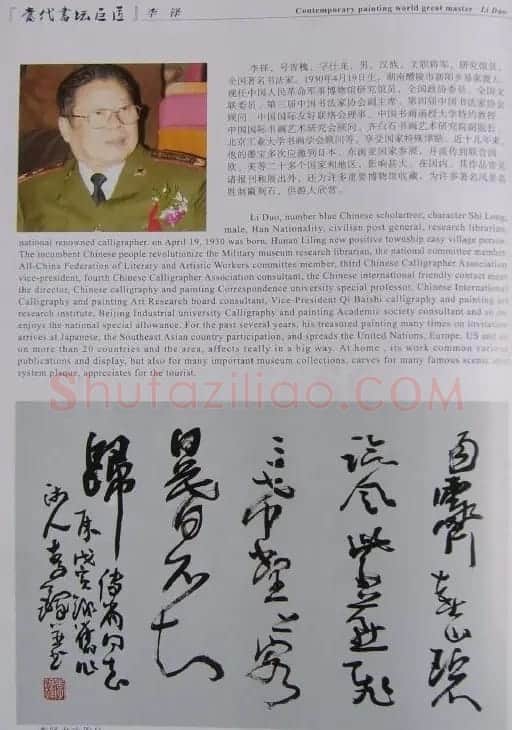 『当代书坛巨匠』 李 铎
Contemporary painting world great master Li Duo
李铎，号青槐，字仕龙，男，汉族，文职将军，研究馆员，
全国著名书法家。1930年4月19日生，湖南醴陵市新阳乡易家渡人。
现任中国人民革命军事博物馆研究馆员，全国政协委员，全国文
联委员，第三届中国书法家协会副主席，第四届中国书法家协会
顾问，中国国际友好联络会理事，中国书画函授大学特约教授，
中国国际书画艺术研究会顾问，齐白石书画艺术研究院副院长，
北京工业大学书画学会顾问等，享受国家特殊津贴。近十几年来，
他的墨宝多次应邀到日本、东南亚国家参展，并流传到联合国、
欧、美等二十多个国家和地区，影响甚大。在国内，其作品常见
诸报刊和展出外，还为许多重要博物馆收藏，为许多著名风景名
胜制匾刻石，供游人欣赏。
Li Duo, number blue Chinese scholartree, character Shi Long,
male, Han Nationality, civilian post general, research librarian,
national renowned calligrapher. on April 19, 1930 was born, Hunan Liling new positive township easy village person.
The incumbent Chinese people revolutionize the Military museum research librarian, the national committee member,
All-China Federation of Literary and Artistic Workers committee member, third Chinese Calligrapher Association
vice-president, fourth Chinese Calligrapher Association consultant, the Chinese international friendly contact meets
the director, Chinese calligraphy and painting Correspondence university special professor, Chinese International
Calligraphy and painting Art Research board consultant, Vice-President Qi Baishi calligraphy and painting art
research institute, Beijing Industrial university Calligraphy and painting Academic society consultant and so on,
enjoys the national special allowance. For the past several years, his treasured painting many times on invitation
arrives at Japanese, the Southeast Asian country participation, and spreads the United Nations, Europe, US and so
on more than 20 countries and the area, affects really in a big way. At home , its work common various
publications and display, but also for many important museum collections, carves for many famous scenic spot
system plaque, appreciates for the tourist.
Shufaziliao.COM
雨霁春山碧
临风
归